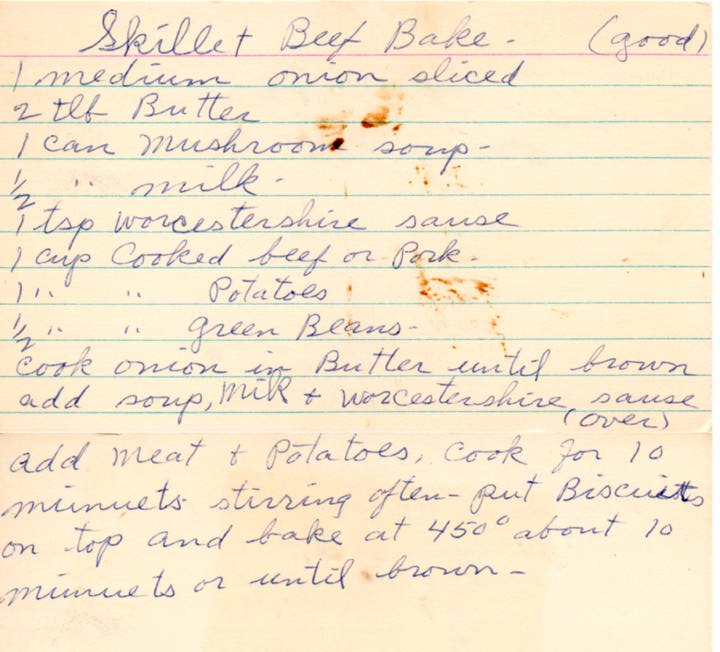 Skillet Beef Bake - (good)
1 medium onion sliced
2 tlb Butter
1 can Mushroom soup -
1/2 " milk -
1 tsp Worcestershire sause
1 cup Cooked beef or Pork -
1 " " Potatoes
1/2 " " green Beans -
Cook onion in Butter until brown
add soup, Milk + Worcestershire sause
(over)
add Meat + Potatoes, Cook for 10
minuets stirring often - put Biscuits
on top and bake at 450° about 10
minuets or until brown -